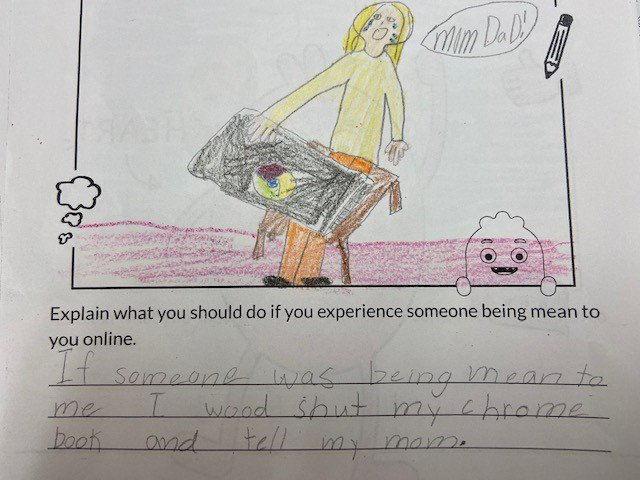 mom DaD!
Explain what you should do if you experience someone being mean to
you online.
If someone was being mean to
me I wood shut my chrome
book and tell my mom.